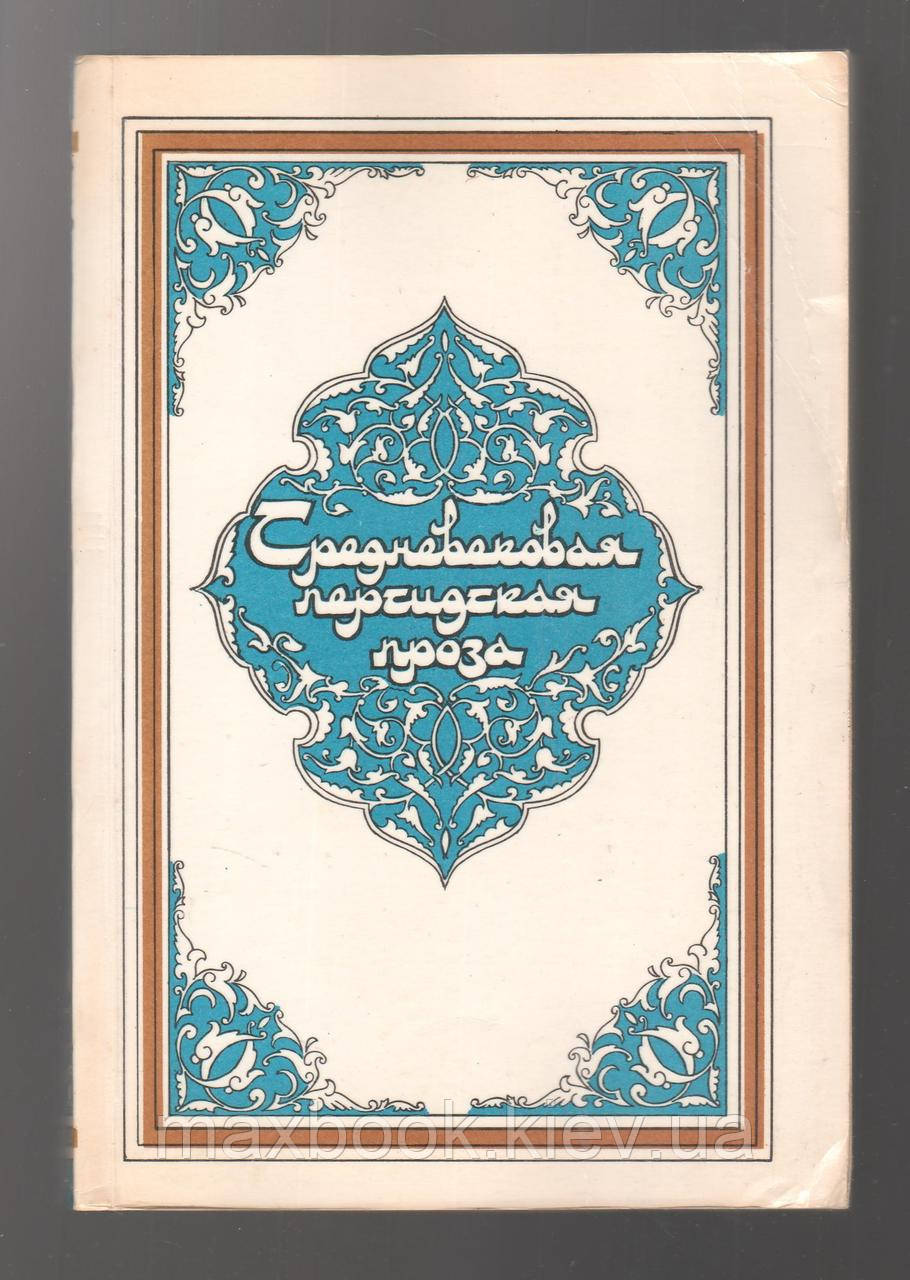 Средневековая
персидская
проза
maxbook.kiev.ua